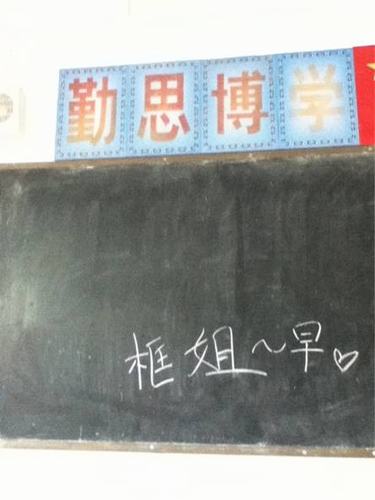 勤思博学
框姐~早♡